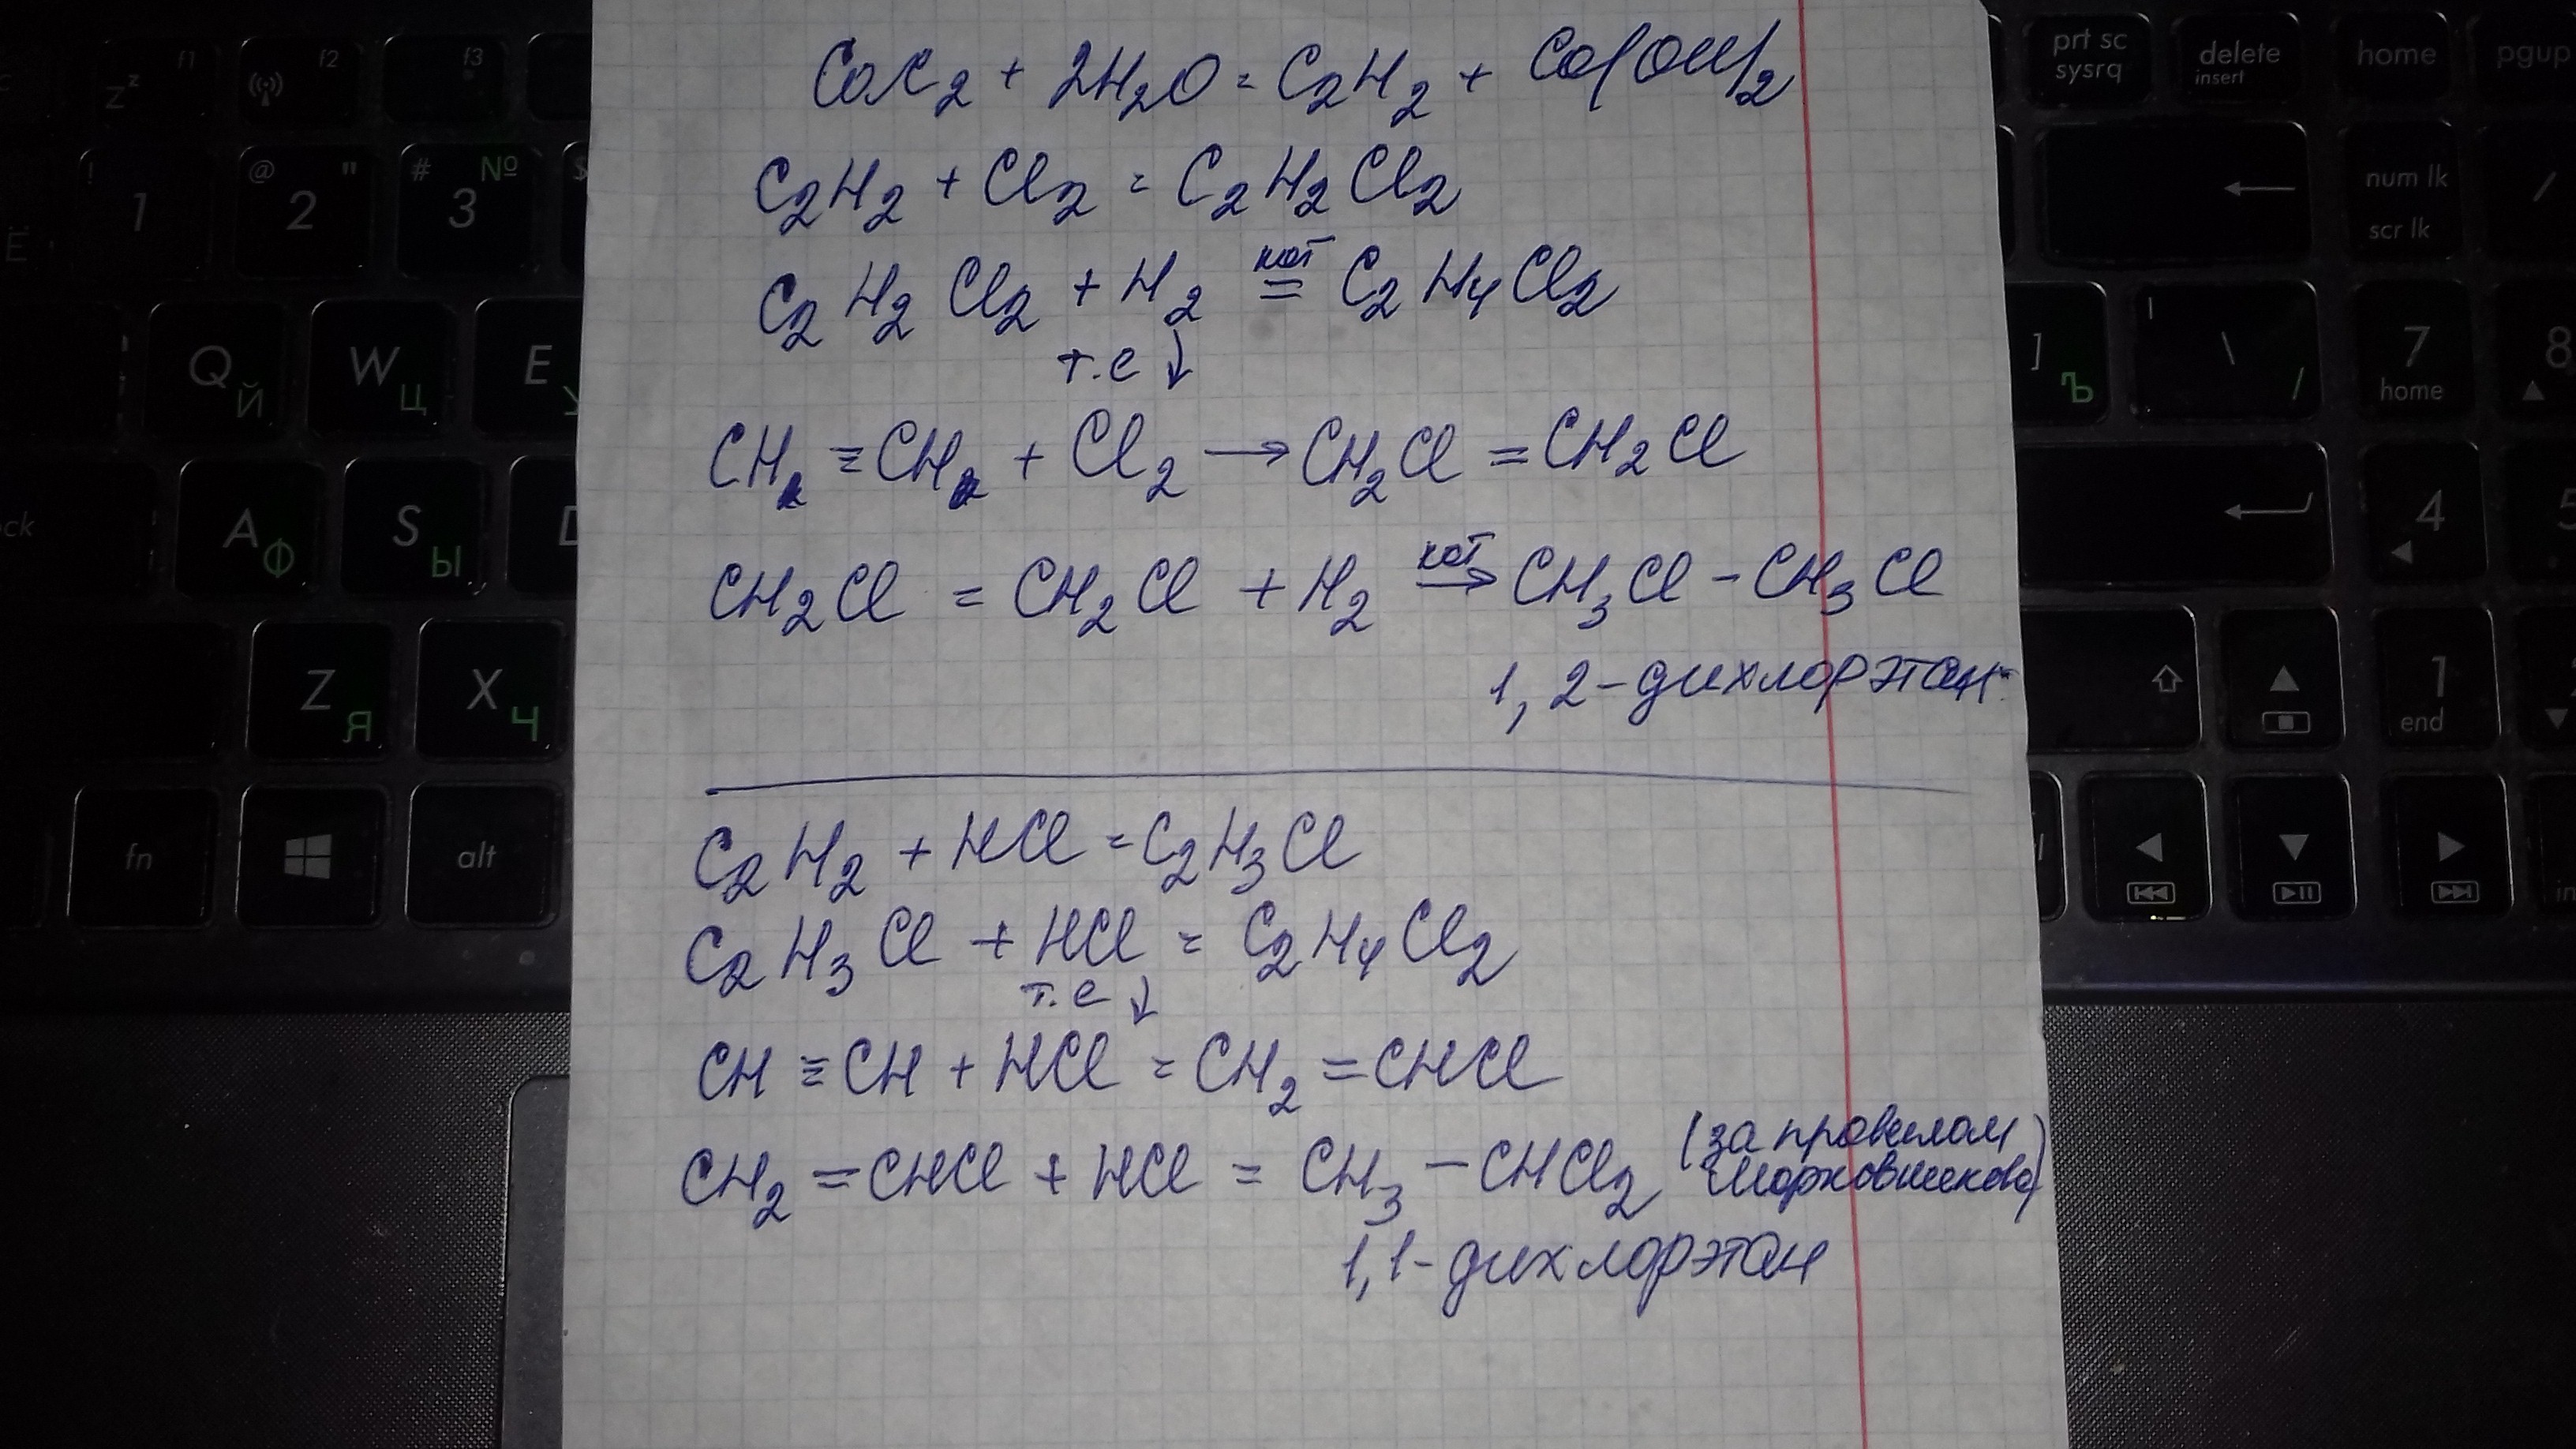 CaC2 + 2H2O = C2H2 + Ca(OH)2
C2H2 + Cl2 = C2H2Cl2
C2H2Cl2 + H2 кат = C2H4Cl2
т.е ↓
CH2 ≡ CH2 + Cl2 → CH2Cl = CH2Cl
CH2Cl = CH2Cl + H2 кат → CH3Cl - CH3Cl
1, 2-дихлорэтан
C2H2 + HCl = C2H3Cl
C2H3Cl + HCl = C2H4Cl2
т.е ↓
CH ≡ CH + HCl = CH2 = CHCl
CH2 = CHCl + HCl = CH3 - CHCl2 (за правилом
Марковникова)
1,1-дихлорэтан
z^z f1
f2
f3
prt sc
sysrq
delete
insert
home
pgup
! 1
@ " 2
# № 3
$
Ё
num lk
scr lk
/
Q Й
W Ц
E У
] Ъ
| \ /
7
home
8
ock
A Ф
S Ы
D
4
5
Z Я
X Ч
1
end
fn
alt
in